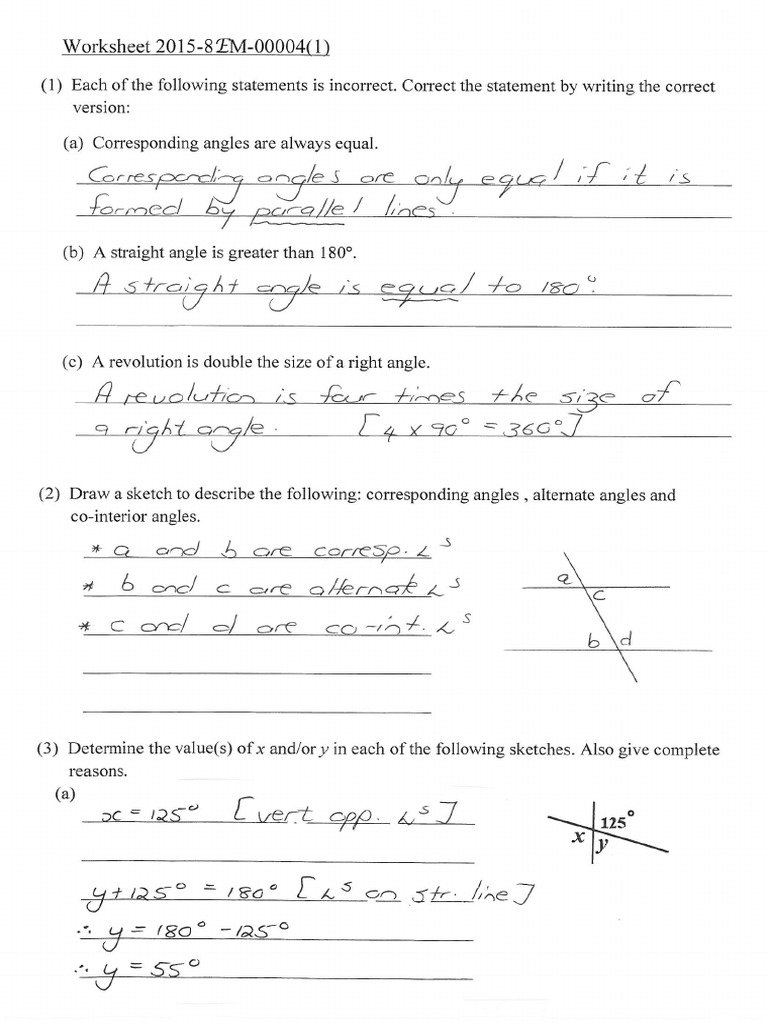 Worksheet 2015-8EM-00004(1)
(1) Each of the following statements is incorrect. Correct the statement by writing the correct
version:
(a) Corresponding angles are always equal.
Corresponding angles are only equal if it is
formed by parallel lines.
(b) A straight angle is greater than 180°.
A straight angle is equal to 180°.
(c) A revolution is double the size of a right angle.
A revolution is four times the size of
a right angle. [4 x 90° = 360°]
(2) Draw a sketch to describe the following: corresponding angles , alternate angles and
co-interior angles.
* a and b are corresp. ∠s
* b and c are alternate ∠s
* c and d are co-int. ∠s
a
c
b d
(3) Determine the value(s) of x and/or y in each of the following sketches. Also give complete
reasons.
(a)
x = 125° [vert opp. ∠s]
125°
x y
y + 125° = 180° [∠s on str. line]
∴ y = 180° - 125°
∴ y = 55°